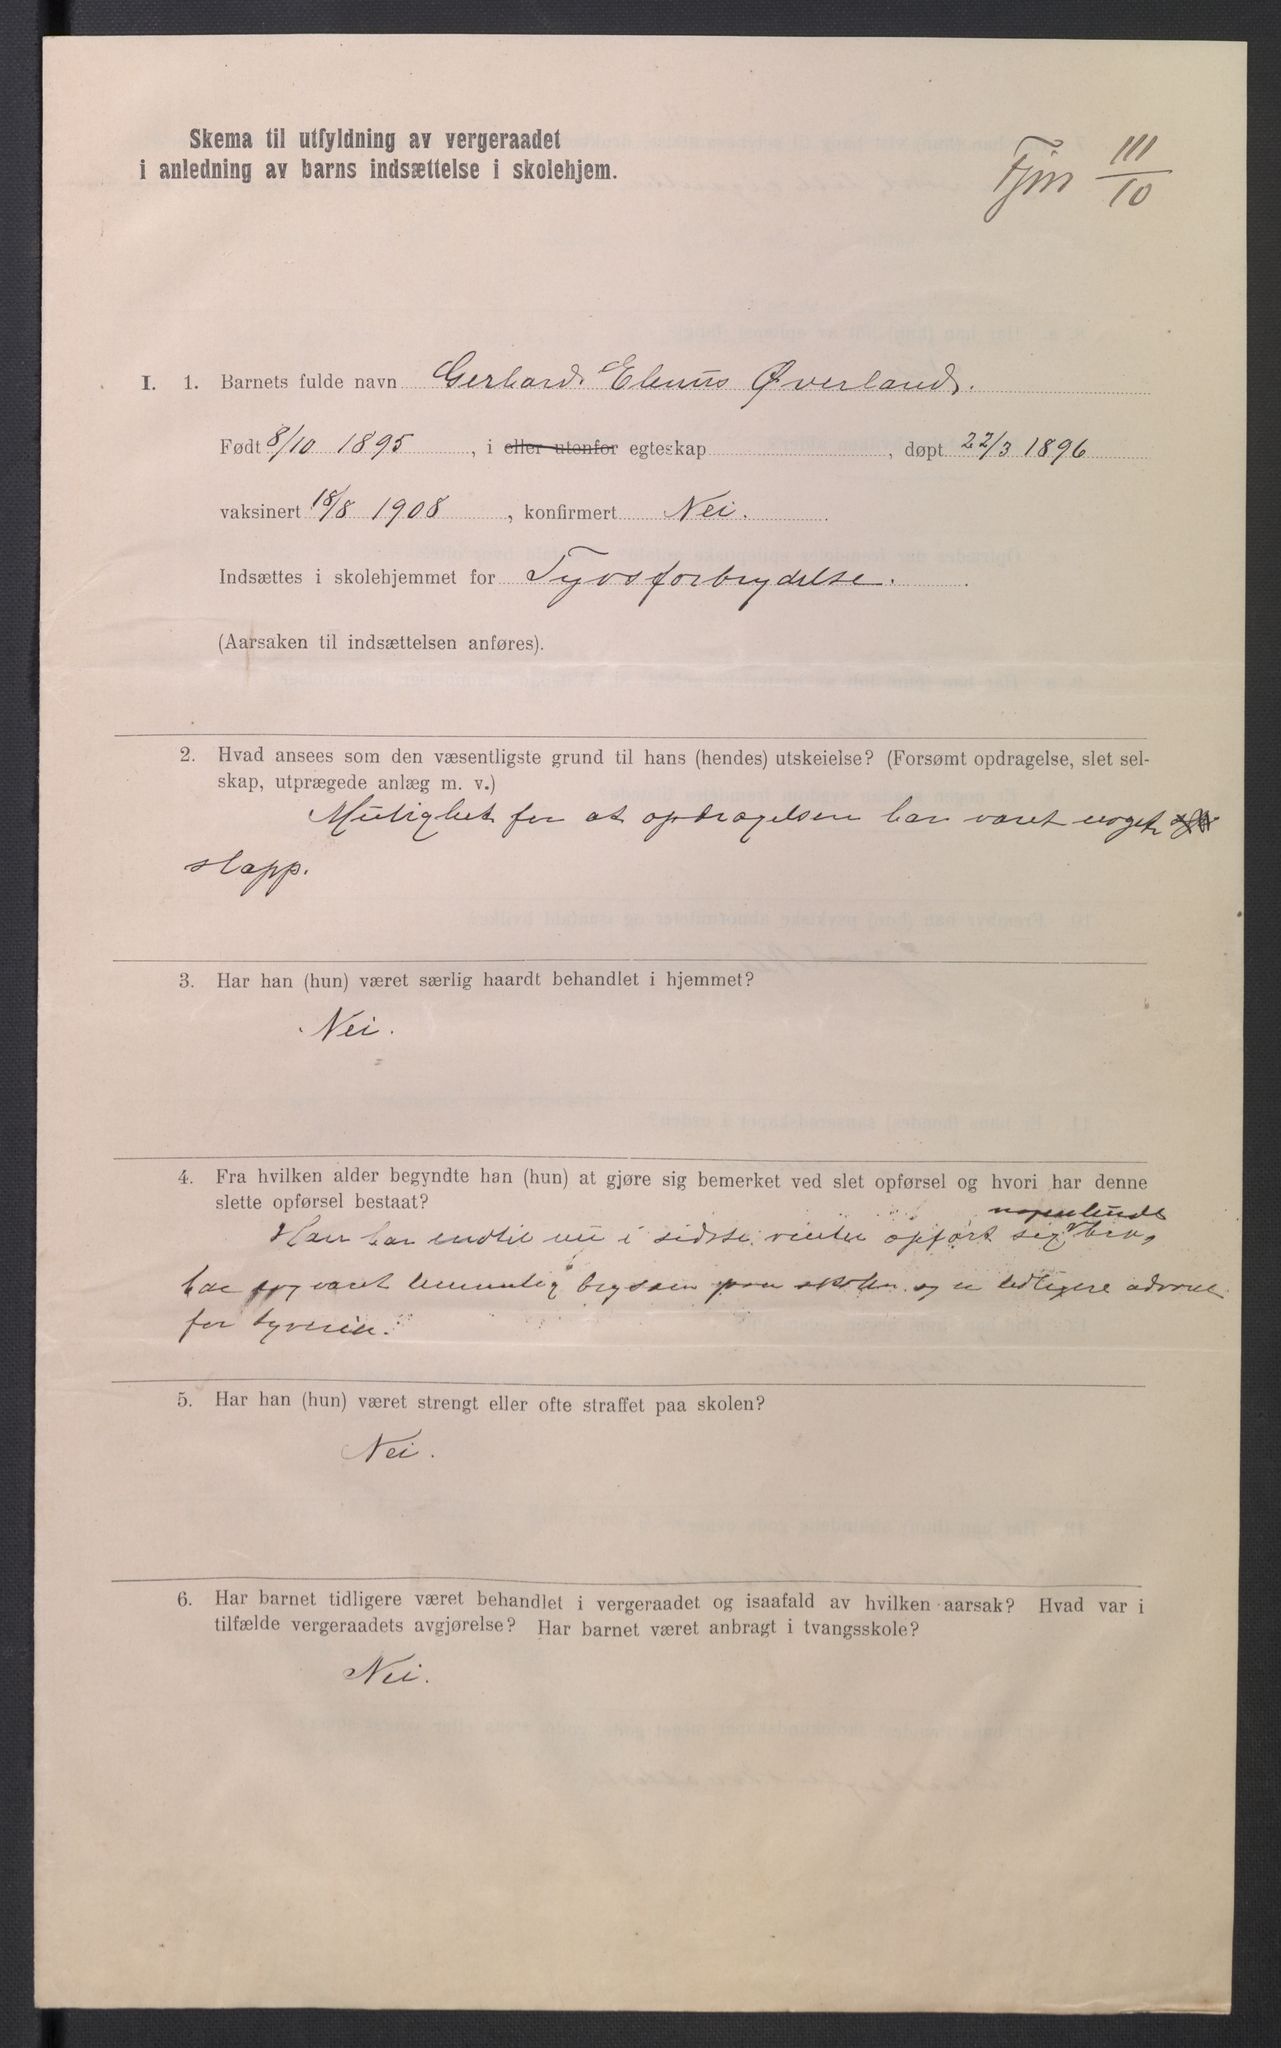 Skema til utfyldning av vergeraadet
i anledning av barns indsættelse i skolehjem.
Fjm 111/10
I. 1. Barnets fulde navn Gerhard Elenus Øverland.
Født 8/10 1895, i eller utenfor egteskap, døpt 22/3 1896
vaksinert 18/8 1908, konfirmert Nei.
Indsættes i skolehjemmet for Tyvsforbrydelse.
(Aarsaken til indsættelsen anføres).
2. Hvad ansees som den væsentligste grund til hans (hendes) utskeielse? (Forsømt opdragelse, slet sel-
skap, utprægede anlæg m. v.)
Mulighet for at opdragelsen har været noget
slapp.
3. Har han (hun) været særlig haardt behandlet i hjemmet?
Nei.
4. Fra hvilken alder begyndte han (hun) at gjøre sig bemerket ved slet opførsel og hvori har denne
slette opførsel bestaat?
nogenlunde
Han har indtil nu i sidste vinter opført sig bra,
har været temmelig paa skolen og er tidligere
for tyveri.
5. Har han (hun) været strengt eller ofte straffet paa skolen?
Nei.
6. Har barnet tidligere været behandlet i vergeraadet og isaafald av hvilken aarsak? Hvad var i
tilfælde vergeraadets avgjørelse? Har barnet været anbragt i tvangsskole?
Nei.